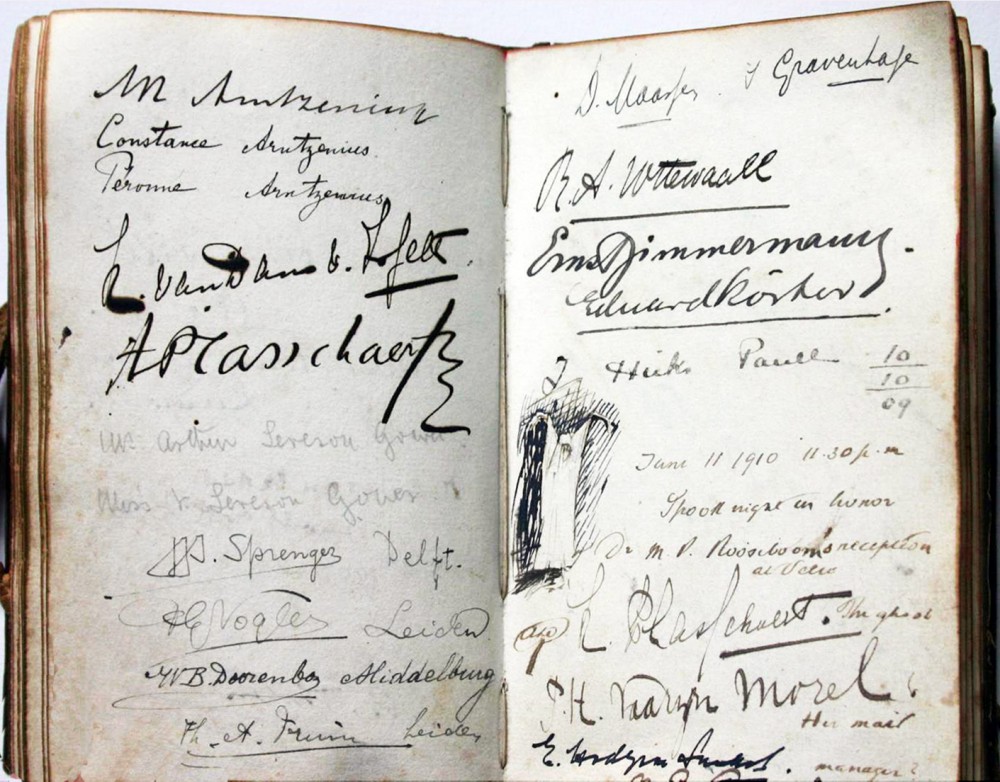 M Arntzenius
Constance Arntzenius.
Péronne Arntzenius
van Dam v.
A Plasschaert
Mr. Arthur Leveson Gower.
Miss V. Leveson Gower.
Sprenger Delft.
Vogler Leiden
W B. Doorenbos Middelburg
Th. A. Fruin Leiden
D. Maasje. s Gravenhage
R. A. Wttewaall
Ernst Zimmermann.
Eduard Körber.
Paull 10
10
09
June 11 1910 11.30 p.m
Spook night in honor
Dr M. P. Rooseboom's reception
at
Plasschaert. The ghost
J. H. Morel
Her mail
E. Hodgson
manager?